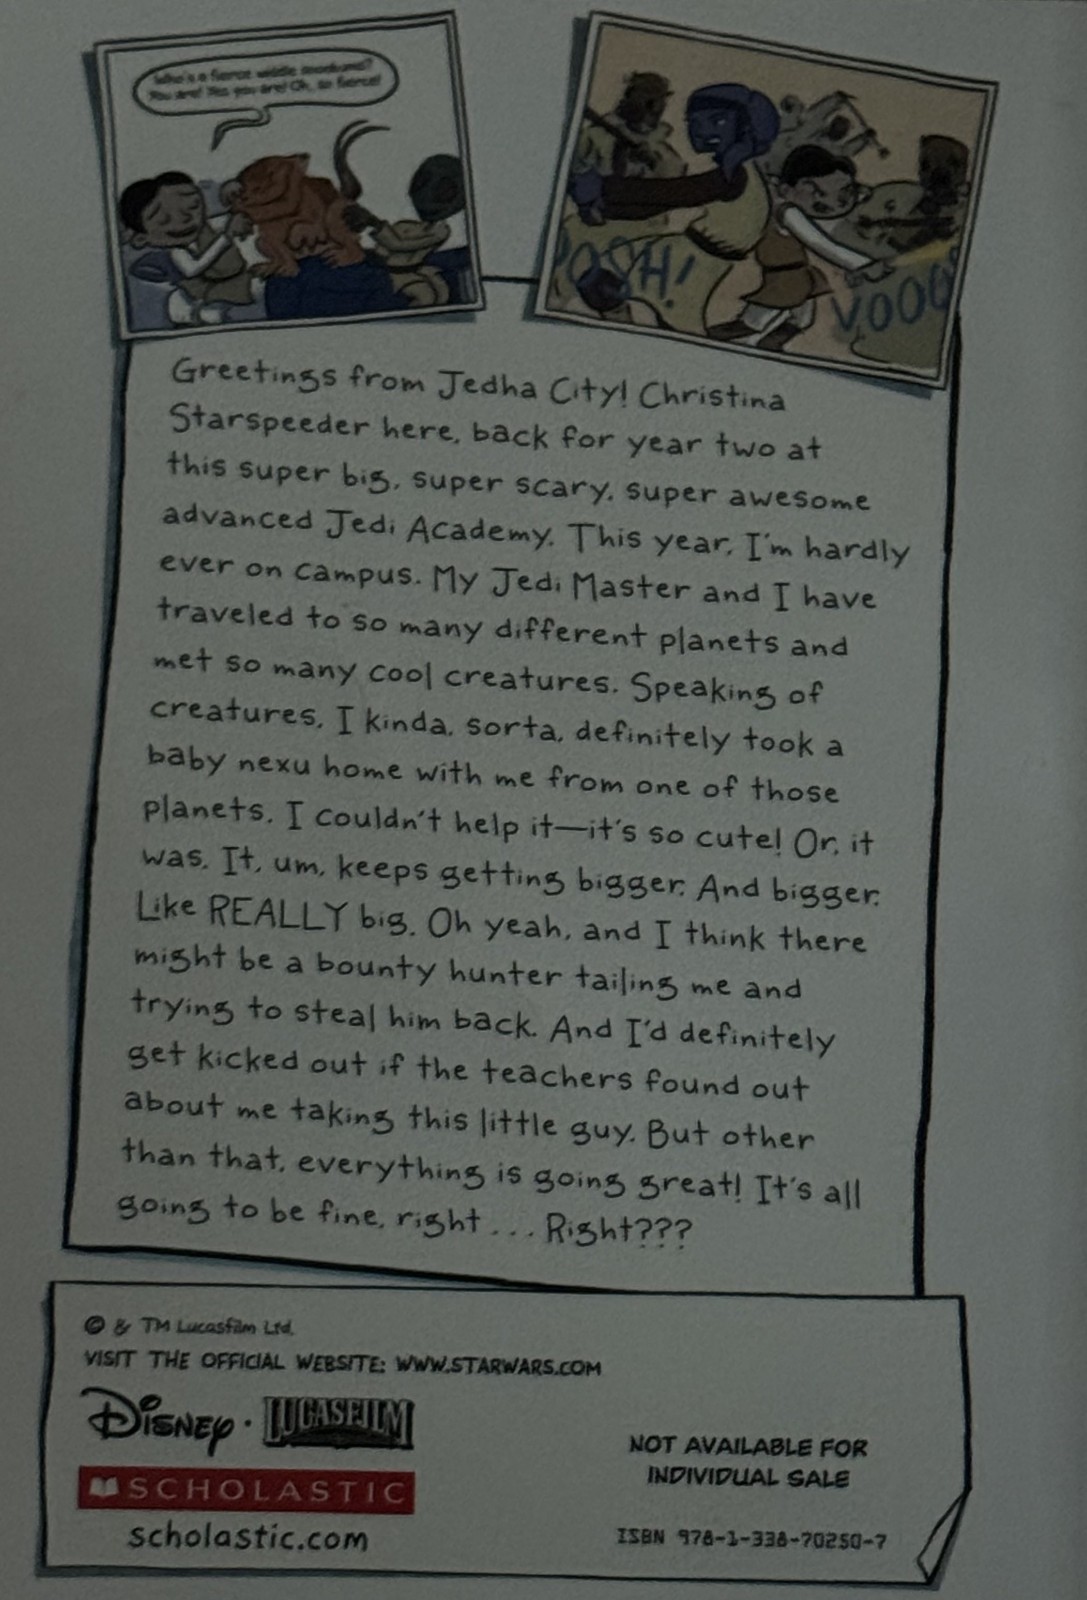 Who's a fierce widdle
You are! Yes you are! Oh, so fierce!
POSH!
VOOO
Greetings from Jedha City! Christina
Starspeeder here, back for year two at
this super big, super scary, super awesome
advanced Jedi Academy. This year, I'm hardly
ever on campus. My Jedi Master and I have
traveled to so many different planets and
met so many cool creatures. Speaking of
creatures, I kinda, sorta, definitely took a
baby nexu home with me from one of those
planets. I couldn't help it—it's so cute! Or, it
was. It, um, keeps getting bigger. And bigger.
Like REALLY big. Oh yeah, and I think there
might be a bounty hunter tailing me and
trying to steal him back. And I'd definitely
get kicked out if the teachers found out
about me taking this little guy. But other
than that, everything is going great! It's all
going to be fine, right . . . Right???
© & TM Lucasfilm Ltd.
VISIT THE OFFICIAL WEBSITE: WWW.STARWARS.COM
Disney · LUCASFILM
SCHOLASTIC
scholastic.com
NOT AVAILABLE FOR
INDIVIDUAL SALE
ISBN 978-1-338-70250-7